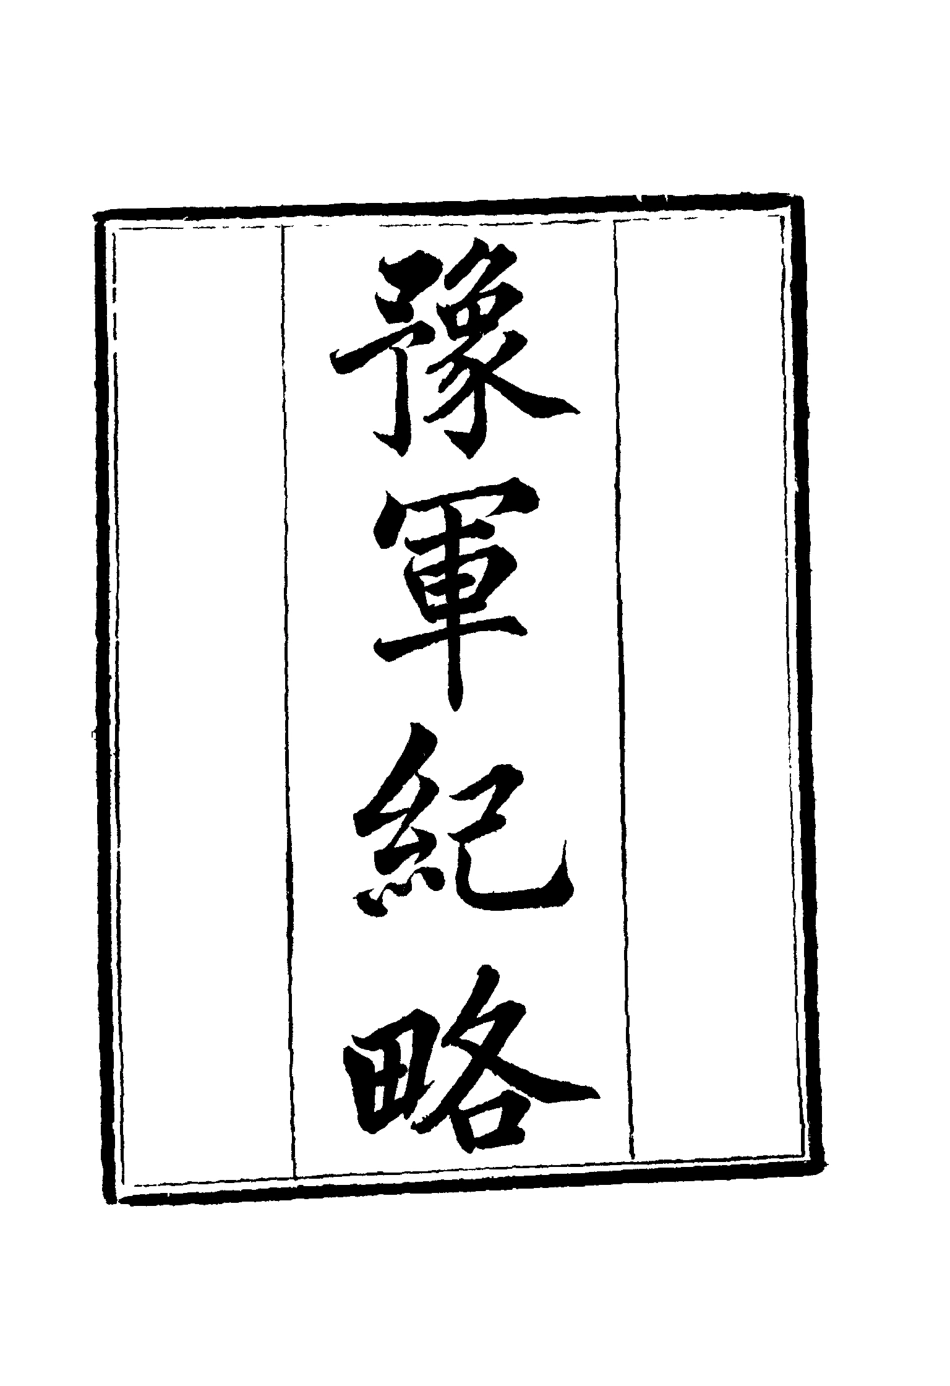 豫軍紀略